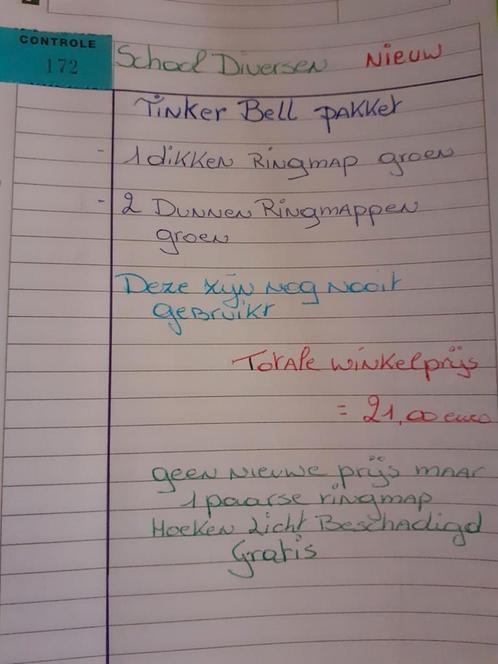 CONTROLE
172
School Diversen Nieuw
Tinker Bell pakket
- 1 dikken Ringmap groen
- 2 Dunnen Ringmappen
groen
Deze zijn nog nooit
gebruikt
Totale winkelprijs
= 21,00 euro
geen nieuwe prijs maar
1 paarse ringmap
Hoeken licht Beschadigd
Gratis